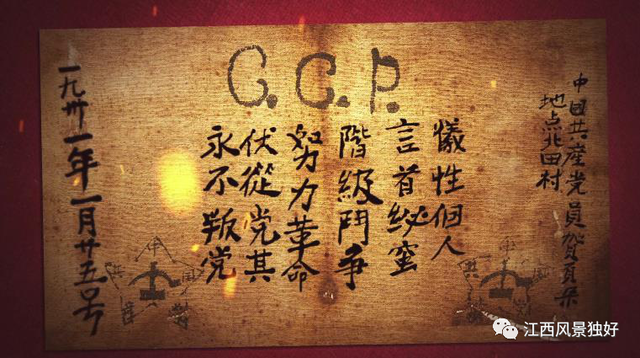 C.C.P.
中國共產党員贺页朵
地点北田村
犧性個人
言首秘蜜
階級鬥争
努力革命
伏從党其
永不叛党
一九卅一年一月廿五号
江西风景独好